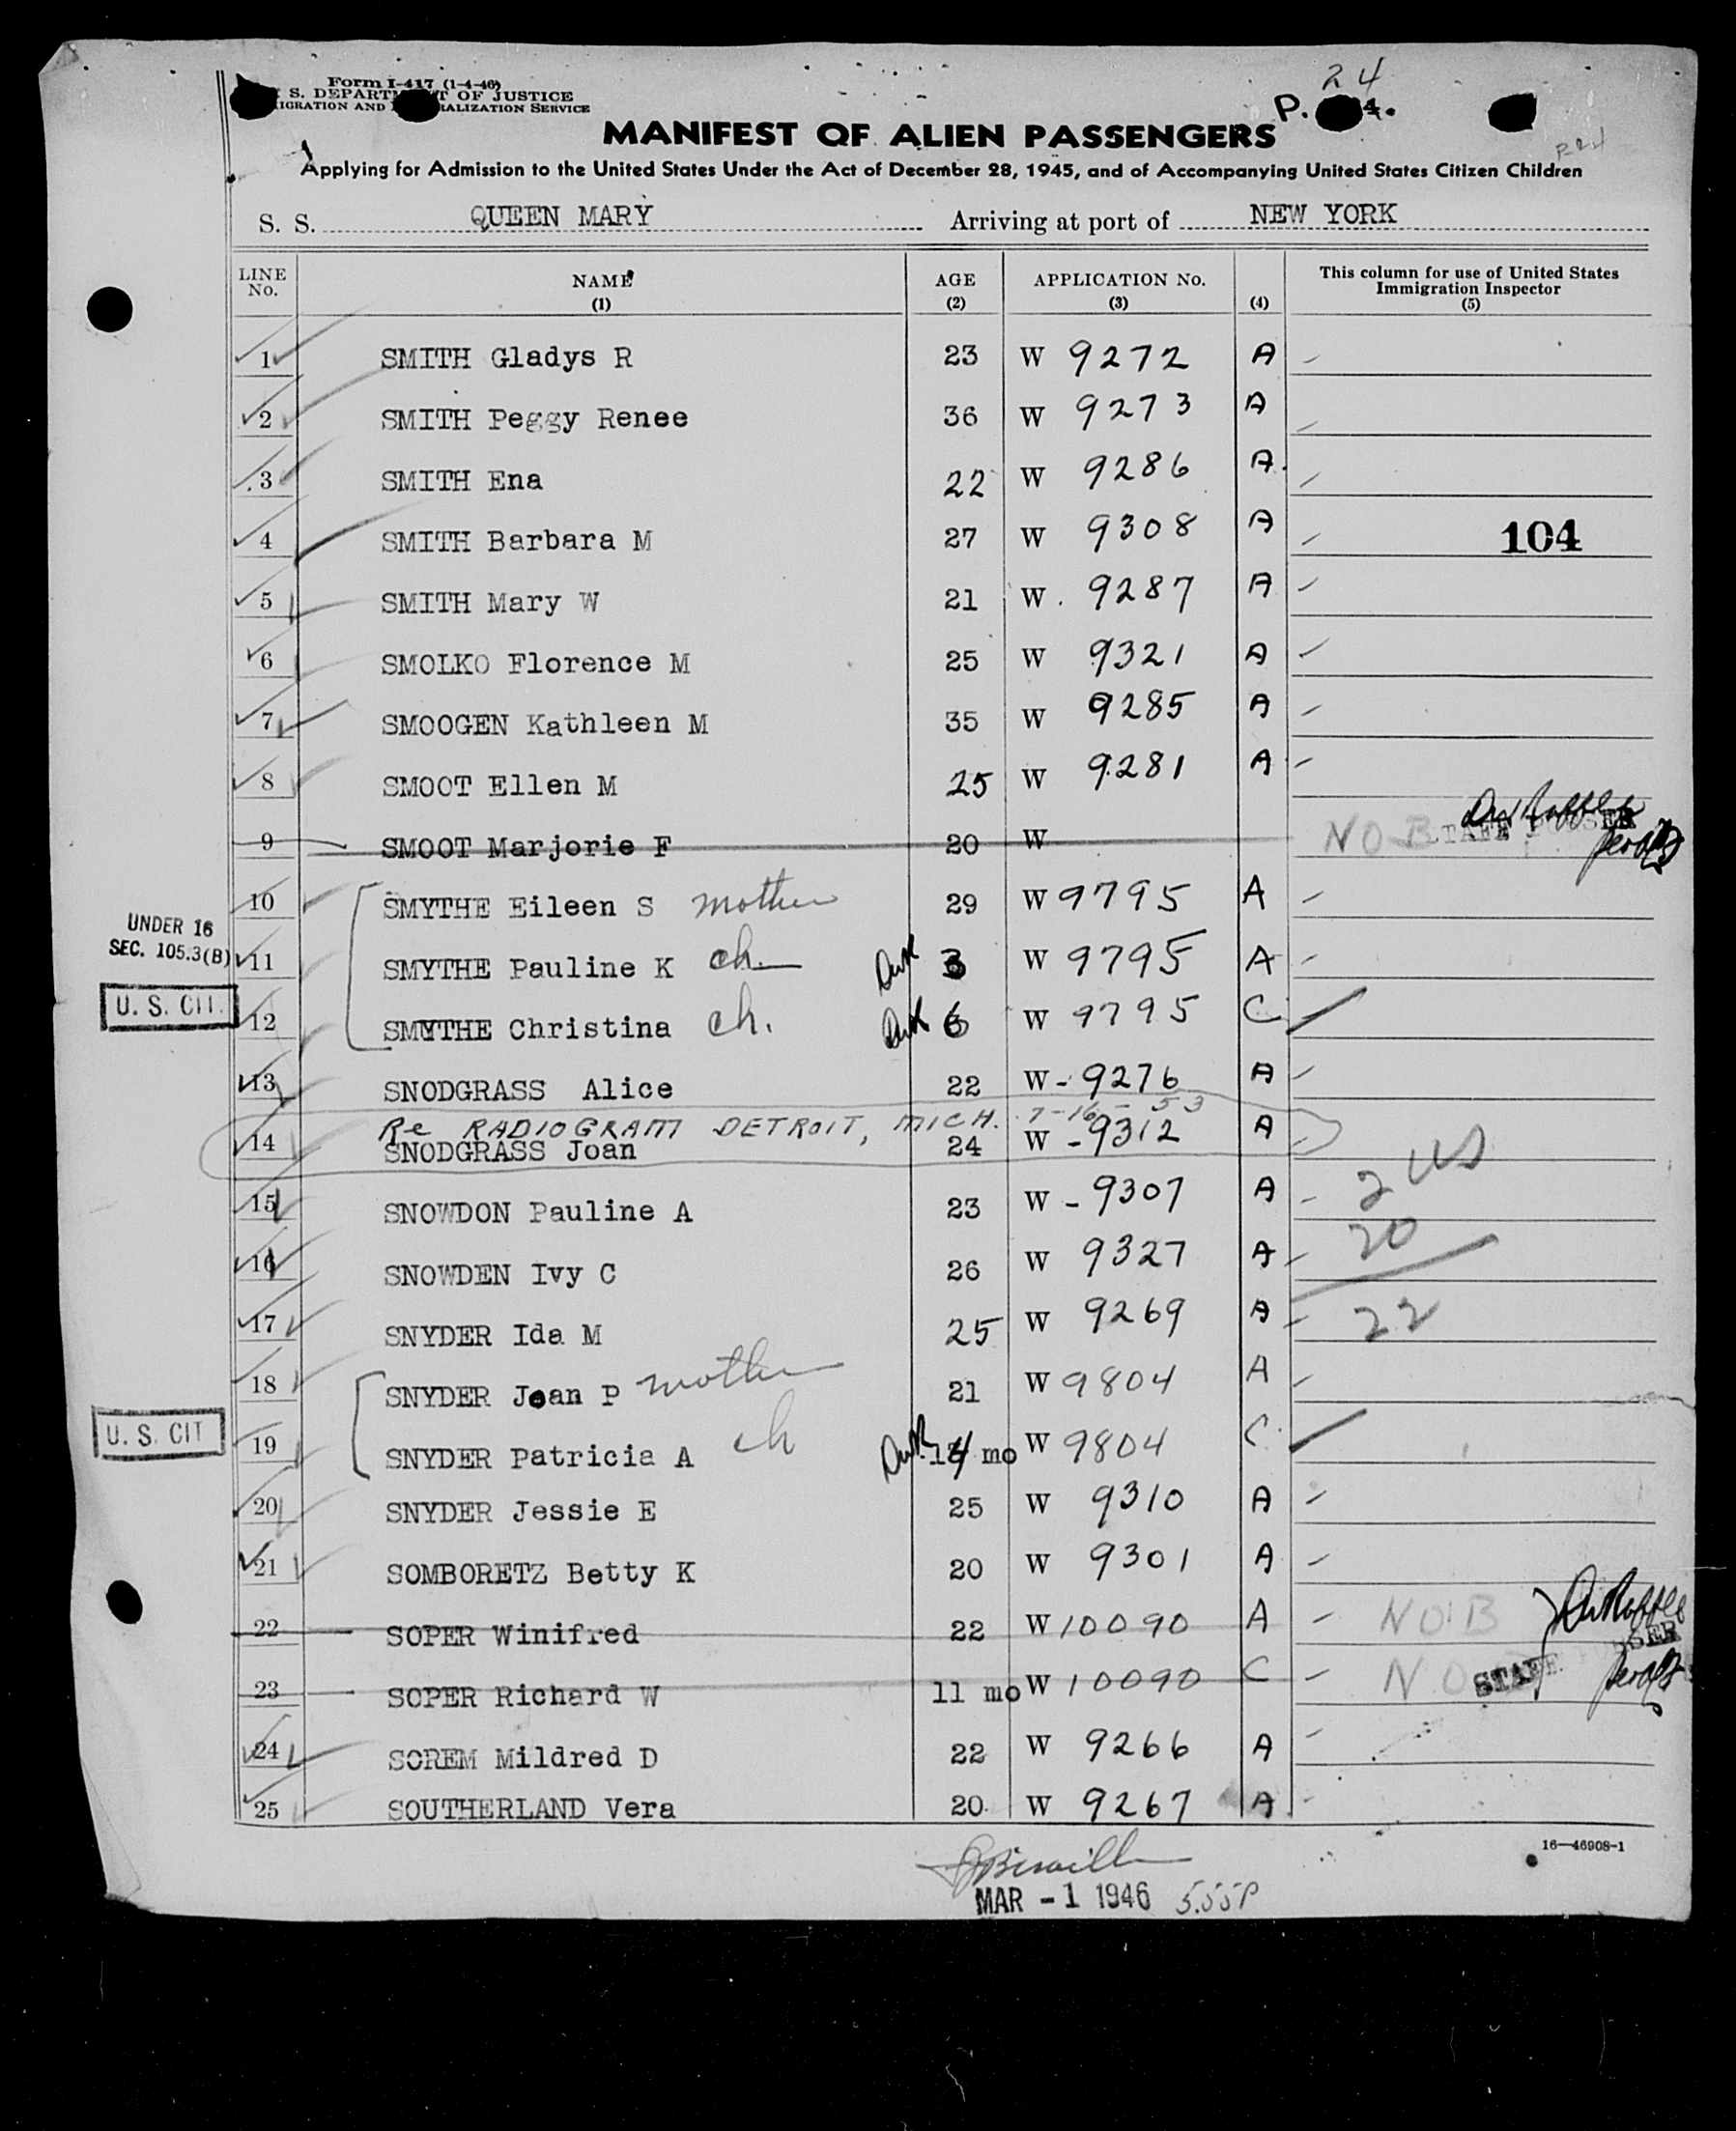 24
Form I-417 (1-4-46)
S. DEPARTMENT OF JUSTICE
P. 4.
IGRATION AND NATURALIZATION SERVICE
MANIFEST OF ALIEN PASSENGERS
P-24
Applying for Admission to the United States Under the Act of December 28, 1945, and of Accompanying United States Citizen Children
S. S. QUEEN MARY Arriving at port of NEW YORK
LINE No. NAME (1) AGE (2) APPLICATION No. (3) (4) This column for use of United States Immigration Inspector (5)
1 SMITH Gladys R 23 W 9272 A
2 SMITH Peggy Renee 36 W 9273 A
3 SMITH Ena 22 W 9286 A
4 SMITH Barbara M 27 W 9308 A 104
5 SMITH Mary W 21 W 9287 A
6 SMOLKO Florence M 25 W 9321 A
7 SMOOGEN Kathleen M 35 W 9285 A
8 SMOOT Ellen M 25 W 9281 A
9 SMOOT Marjorie F 20 W NOB
10 SMYTHE Eileen S mother 29 W 9795 A
UNDER 16
SEC. 105.3(B) 11 SMYTHE Pauline K ch. 3 W 9795 A
U. S. CIT. 12 SMYTHE Christina ch. 6 W 9795 C
13 SNODGRASS Alice 22 W-9276 A
Re RADIOGRAM DETROIT, MICH. 7-16-53
14 SNODGRASS Joan 24 W-9312 A
2 US
15 SNOWDON Pauline A 23 W-9307 A
20
16 SNOWDEN Ivy C 26 W 9327 A
22
17 SNYDER Ida M 25 W 9269 A
18 SNYDER Joan P mother 21 W 9804 A
U. S. CIT 19 SNYDER Patricia A ch 14 mo W 9804 C
20 SNYDER Jessie E 25 W 9310 A
21 SOMBORETZ Betty K 20 W 9301 A
22 SOPER Winifred 22 W 10090 A NOB
23 SOPER Richard W 11 mo W 10090 C STAFF
24 SOREM Mildred D 22 W 9266 A
25 SOUTHERLAND Vera 20 W 9267 A
16—46908-1
MAR -1 1946 5.55P